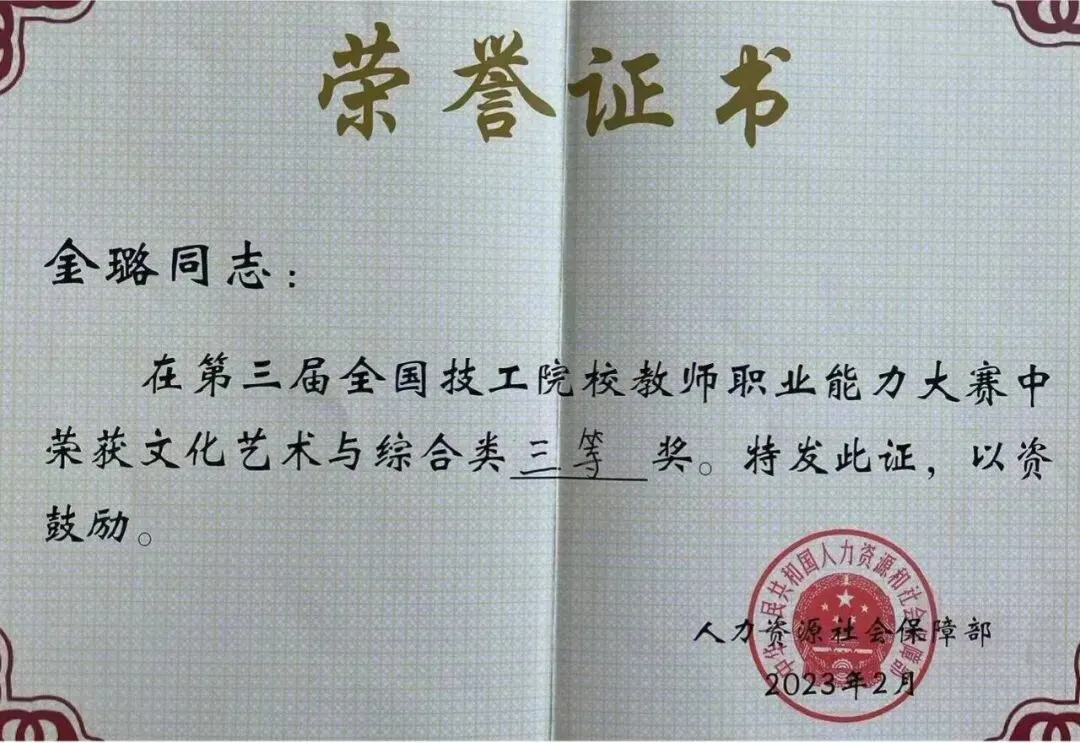 荣誉证书
金璐同志：
在第三届全国技工院校教师职业能力大赛中
荣获文化艺术与综合类三等奖。特发此证，以资
鼓励。
中华人民共和国人力资源和社会保障部
人力资源社会保障部
2023年2月